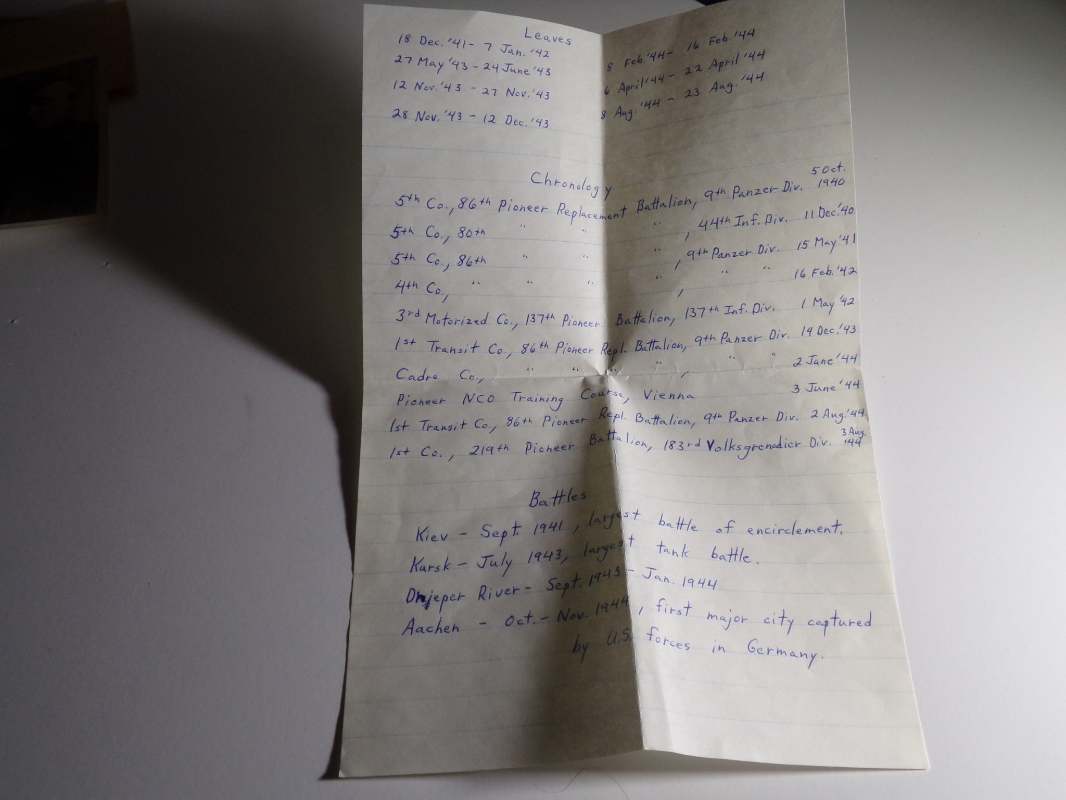 Leaves
18 Dec. '41 - 7 Jan. '42
27 May '43 - 24 June '43
12 Nov. '43 - 27 Nov. '43
28 Nov. '43 - 12 Dec. '43
8 Feb '44 - 16 Feb. '44
6 April '44 - 22 April '44
8 Aug. '44 - 23 Aug. '44
Chronology
5th Co., 86th Pioneer Replacement Battalion, 9th Panzer Div. 5 Oct. 1940
5th Co., 80th " " " , 44th Inf. Div. 11 Dec. '40
5th Co., 86th " " " , 9th Panzer Div. 15 May '41
4th Co, " " " " , " " 16 Feb. '42
3rd Motorized Co., 137th Pioneer Battalion, 137th Inf. Div. 1 May '42
1st Transit Co., 86th Pioneer Repl. Battalion, 9th Panzer Div. 19 Dec. '43
Cadre Co., " " " " , " " 2 June '44
Pioneer NCO Training Course, Vienna 3 June '44
1st Transit Co., 86th Pioneer Repl. Battalion, 9th Panzer Div. 2 Aug. '44
1st Co., 219th Pioneer Battalion, 183rd Volksgrenadier Div. 3 Aug. '44
Battles
Kiev - Sept. 1941, largest battle of encirclement.
Kursk - July 1943, largest tank battle.
Dnjeper River - Sept. 1943 - Jan. 1944
Aachen - Oct. - Nov. 1944, first major city captured
by U.S. forces in Germany.